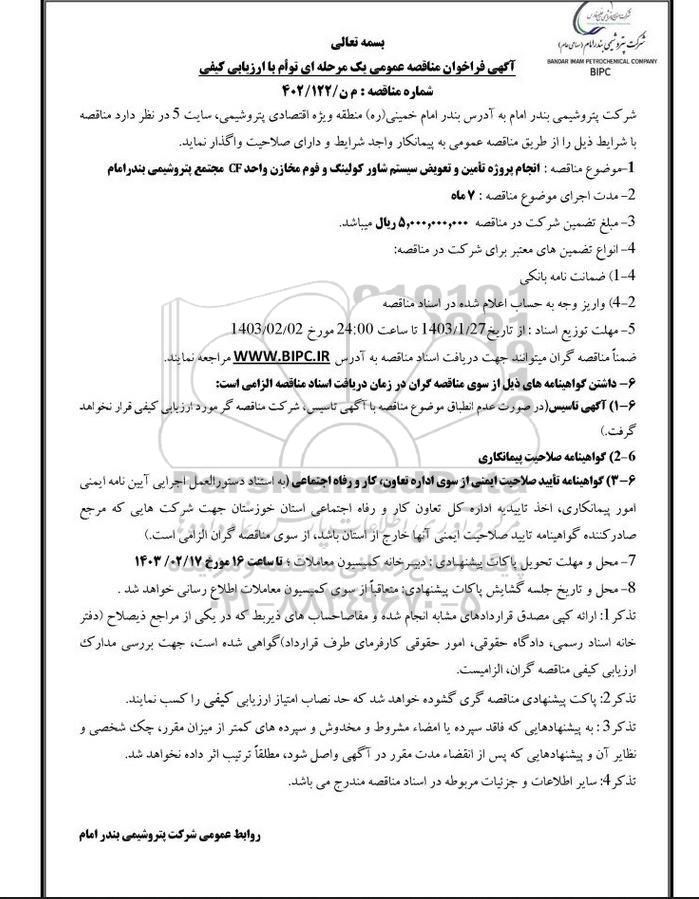 شرکت پتروشیمی بندرامام (سهامی عام)
BANDAR IMAM PETROCHEMICAL COMPANY
BIPC
بسمه تعالی
آگهی فراخوان مناقصه عمومی یک مرحله ای توأم با ارزیابی کیفی
شماره مناقصه : م ن/۴۰۲/۱۲۲
شرکت پتروشیمی بندر امام به آدرس بندر امام خمینی(ره) منطقه ویژه اقتصادی پتروشیمی، سایت 5 در نظر دارد مناقصه
با شرایط ذیل را از طریق مناقصه عمومی به پیمانکار واجد شرایط و دارای صلاحیت واگذار نماید.
1-موضوع مناقصه : انجام پروژه تأمین و تعویض سیستم شاور کولینگ و فوم مخازن واحد CF مجتمع پتروشیمی بندرامام
2- مدت اجرای موضوع مناقصه : ۷ ماه
3- مبلغ تضمین شرکت در مناقصه ۵,۰۰۰,۰۰۰,۰۰۰ ریال میباشد.
4- انواع تضمین های معتبر برای شرکت در مناقصه:
4-1) ضمانت نامه بانکی
4-2) واریز وجه به حساب اعلام شده در اسناد مناقصه
5- مهلت توزیع اسناد : از تاریخ1403/1/27 تا ساعت 24:00 مورخ 1403/02/02
ضمناً مناقصه گران میتوانند جهت دریافت اسناد مناقصه به آدرس WWW.BIPC.IR مراجعه نمایند.
۶- داشتن گواهینامه های ذیل از سوی مناقصه گران در زمان دریافت اسناد مناقصه الزامی است:
۶-۱) آگهی تاسیس(در صورت عدم انطباق موضوع مناقصه با آگهی تاسیس، شرکت مناقصه گر مورد ارزیابی کیفی قرار نخواهد
گرفت.)
6-2) گواهینامه صلاحیت پیمانکاری
۶-۳) گواهینامه تأیید صلاحیت ایمنی از سوی اداره تعاون، کار و رفاه اجتماعی (به استناد دستورالعمل اجرایی آیین نامه ایمنی
امور پیمانکاری، اخذ تاییدیه اداره کل تعاون کار و رفاه اجتماعی استان خوزستان جهت شرکت هایی که مرجع
صادرکننده گواهینامه تایید صلاحیت ایمنی آنها خارج از استان باشد، از سوی مناقصه گران الزامی است.)
7- محل و مهلت تحویل پاکات پیشنهادی : دبیرخانه کمیسیون معاملات ؛ تا ساعت ۱۶ مورخ ۱۴۰۳/۰۲/۱۷
8- محل و تاریخ جلسه گشایش پاکات پیشنهادی: متعاقباً از سوی کمیسیون معاملات اطلاع رسانی خواهد شد .
تذکر1: ارائه کپی مصدق قراردادهای مشابه انجام شده و مفاصاحساب های ذیربط که در یکی از مراجع ذیصلاح (دفتر
خانه اسناد رسمی، دادگاه حقوقی، امور حقوقی کارفرمای طرف قرارداد)گواهی شده است، جهت بررسی مدارک
ارزیابی کیفی مناقصه گران، الزامیست.
تذکر2: پاکت پیشنهادی مناقصه گری گشوده خواهد شد که حد نصاب امتیاز ارزیابی کیفی را کسب نمایند.
تذکر3 : به پیشنهادهایی که فاقد سپرده یا امضاء مشروط و مخدوش و سپرده های کمتر از میزان مقرر، چک شخصی و
نظایر آن و پیشنهادهایی که پس از انقضاء مدت مقرر در آگهی واصل شود، مطلقاً ترتیب اثر داده نخواهد شد.
تذکر4: سایر اطلاعات و جزئیات مربوطه در اسناد مناقصه مندرج می باشد.
روابط عمومی شرکت پتروشیمی بندر امام
ParsNamadData
۰۲۱-۸۸۳۴۹۶۷۰-۵